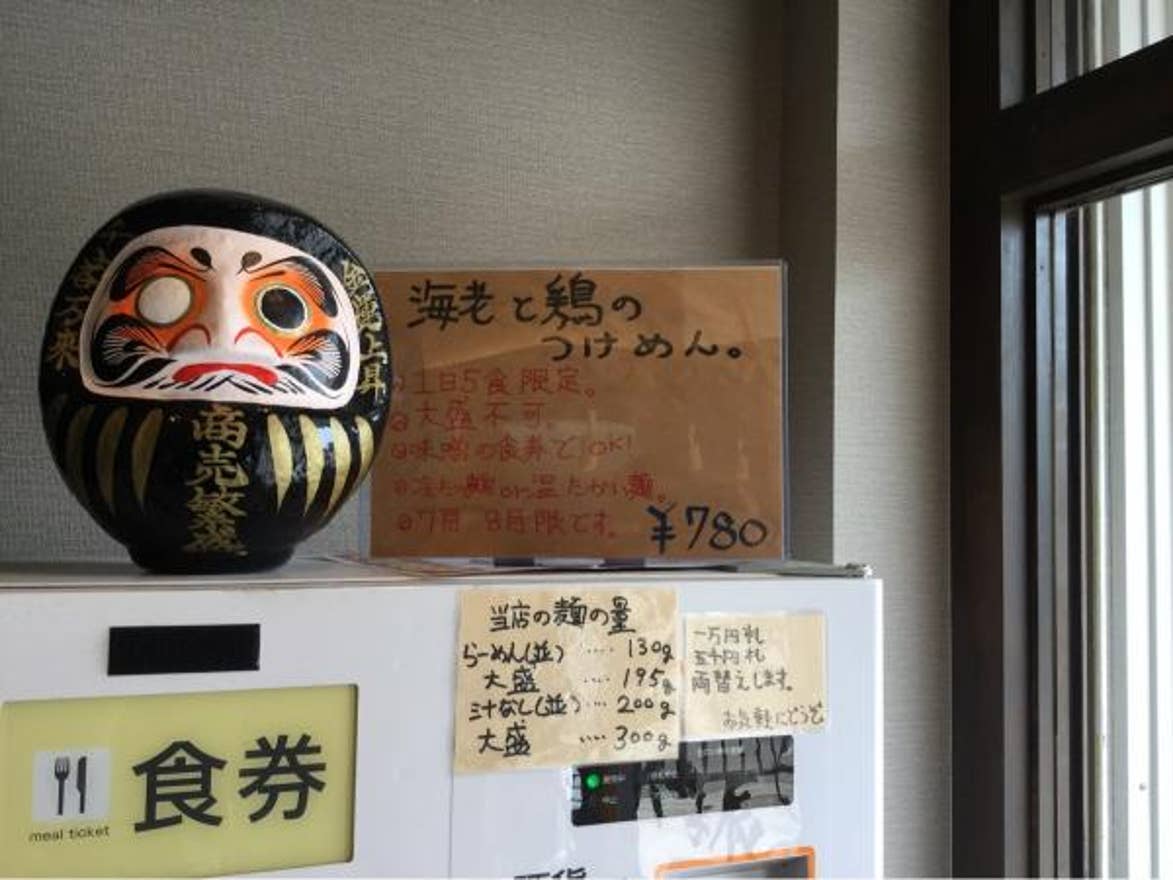 海老と鶏の
つけめん。
◎1日5食限定。
◎大盛不可。
◎味噌の食券でOK!
◎冷たい麺or温たかい麺。
◎7月 8月限です。
¥780
業万来
運上昇
商売繁盛
当店の麺の量
らーめん(並) ‥‥ 130g
大盛 ‥‥ 195g
汁なし(並) ‥‥ 200g
大盛 ‥‥ 300g
一万円札
五千円札
両替えします。
お気軽にどうぞ
食券
meal ticket